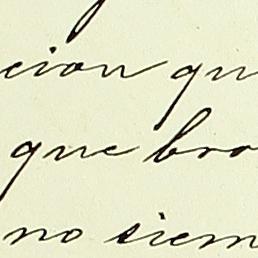 cion qu
que bro
no siem